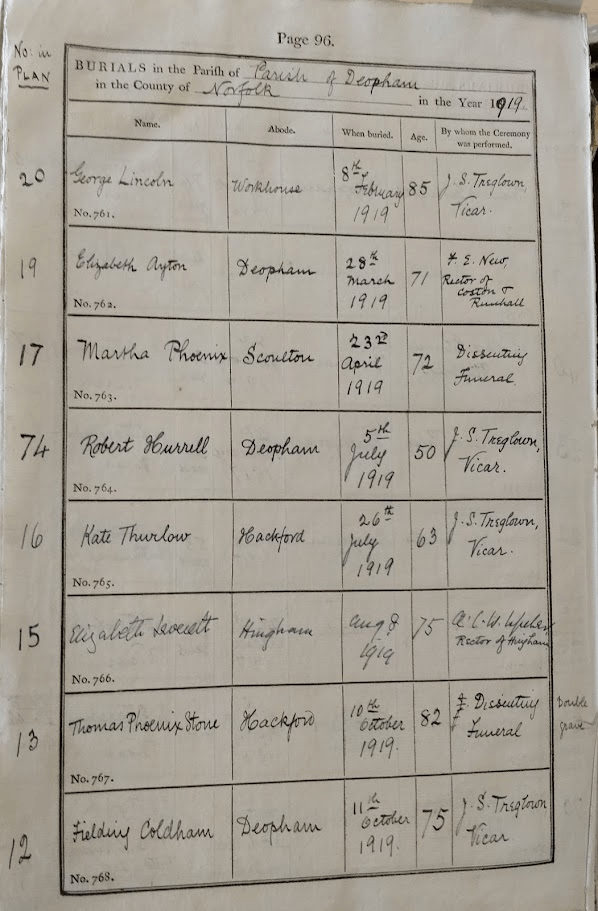 Page 96.
No: in
PLAN
BURIALS in the Parish of Parish of Deopham
in the County of Norfolk in the Year 1919.
Name. Abode. When buried. Age. By whom the Ceremony
was performed.
20 George Lincoln Workhouse 8th February 1919 85 J. S. Treglown, Vicar.
No. 761.
19 Elizabeth Ayton Deopham 28th March 1919 71 E. New, Rector of Coston & Runhall
No. 762.
17 Martha Phoenix Scoulton 23rd April 1919 72 Dissenting Funeral
No. 763.
74 Robert Hurrell Deopham 5th July 1919 50 J. S. Treglown, Vicar.
No. 764.
16 Kate Thurlow Hackford 26th July 1919 63 J. S. Treglown, Vicar.
No. 765.
15 Elizabeth Leverett Hingham Aug 8 1919 75 Rector of Hingham
No. 766.
13 Thomas Phoenix Stone Hackford 10th October 1919. 82 Dissenting Funeral Double grave
No. 767.
12 Fielding Coldham Deopham 11th October 1919. 75 J. S. Treglown Vicar
No. 768.